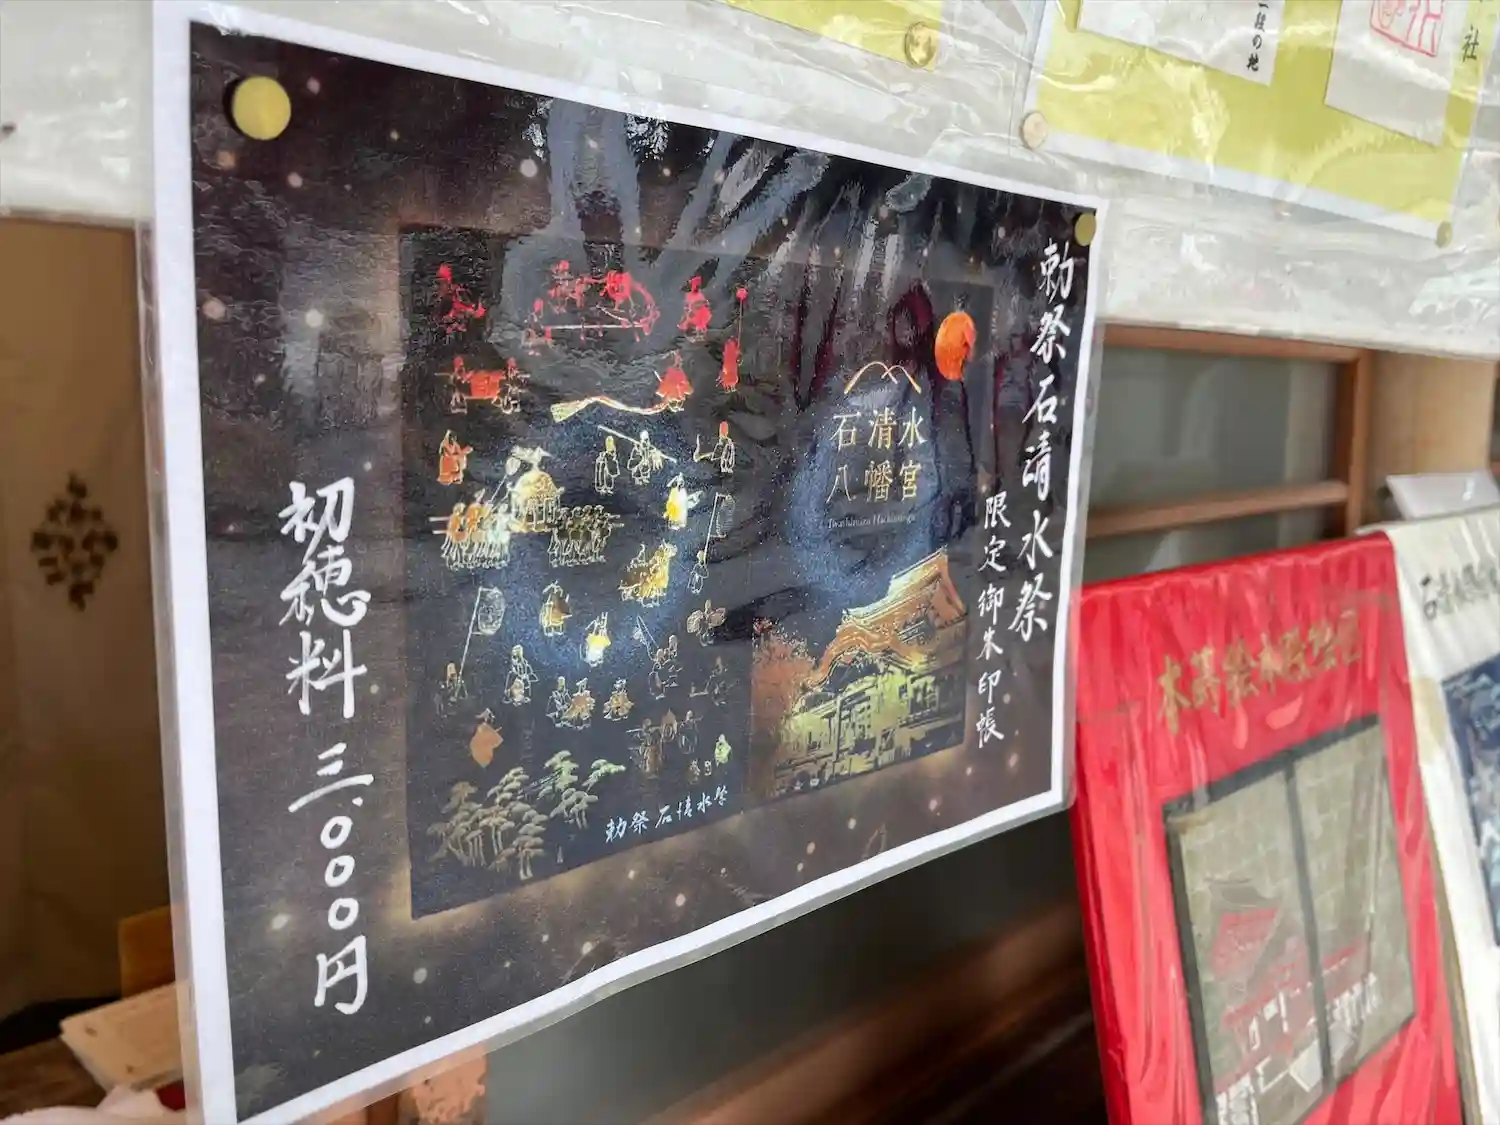 勅祭石清水祭
限定御朱印帳
石清水
八幡宮
Iwashimizu Hachimangu
勅祭 石清水祭
初穂料 三、〇〇〇円
社